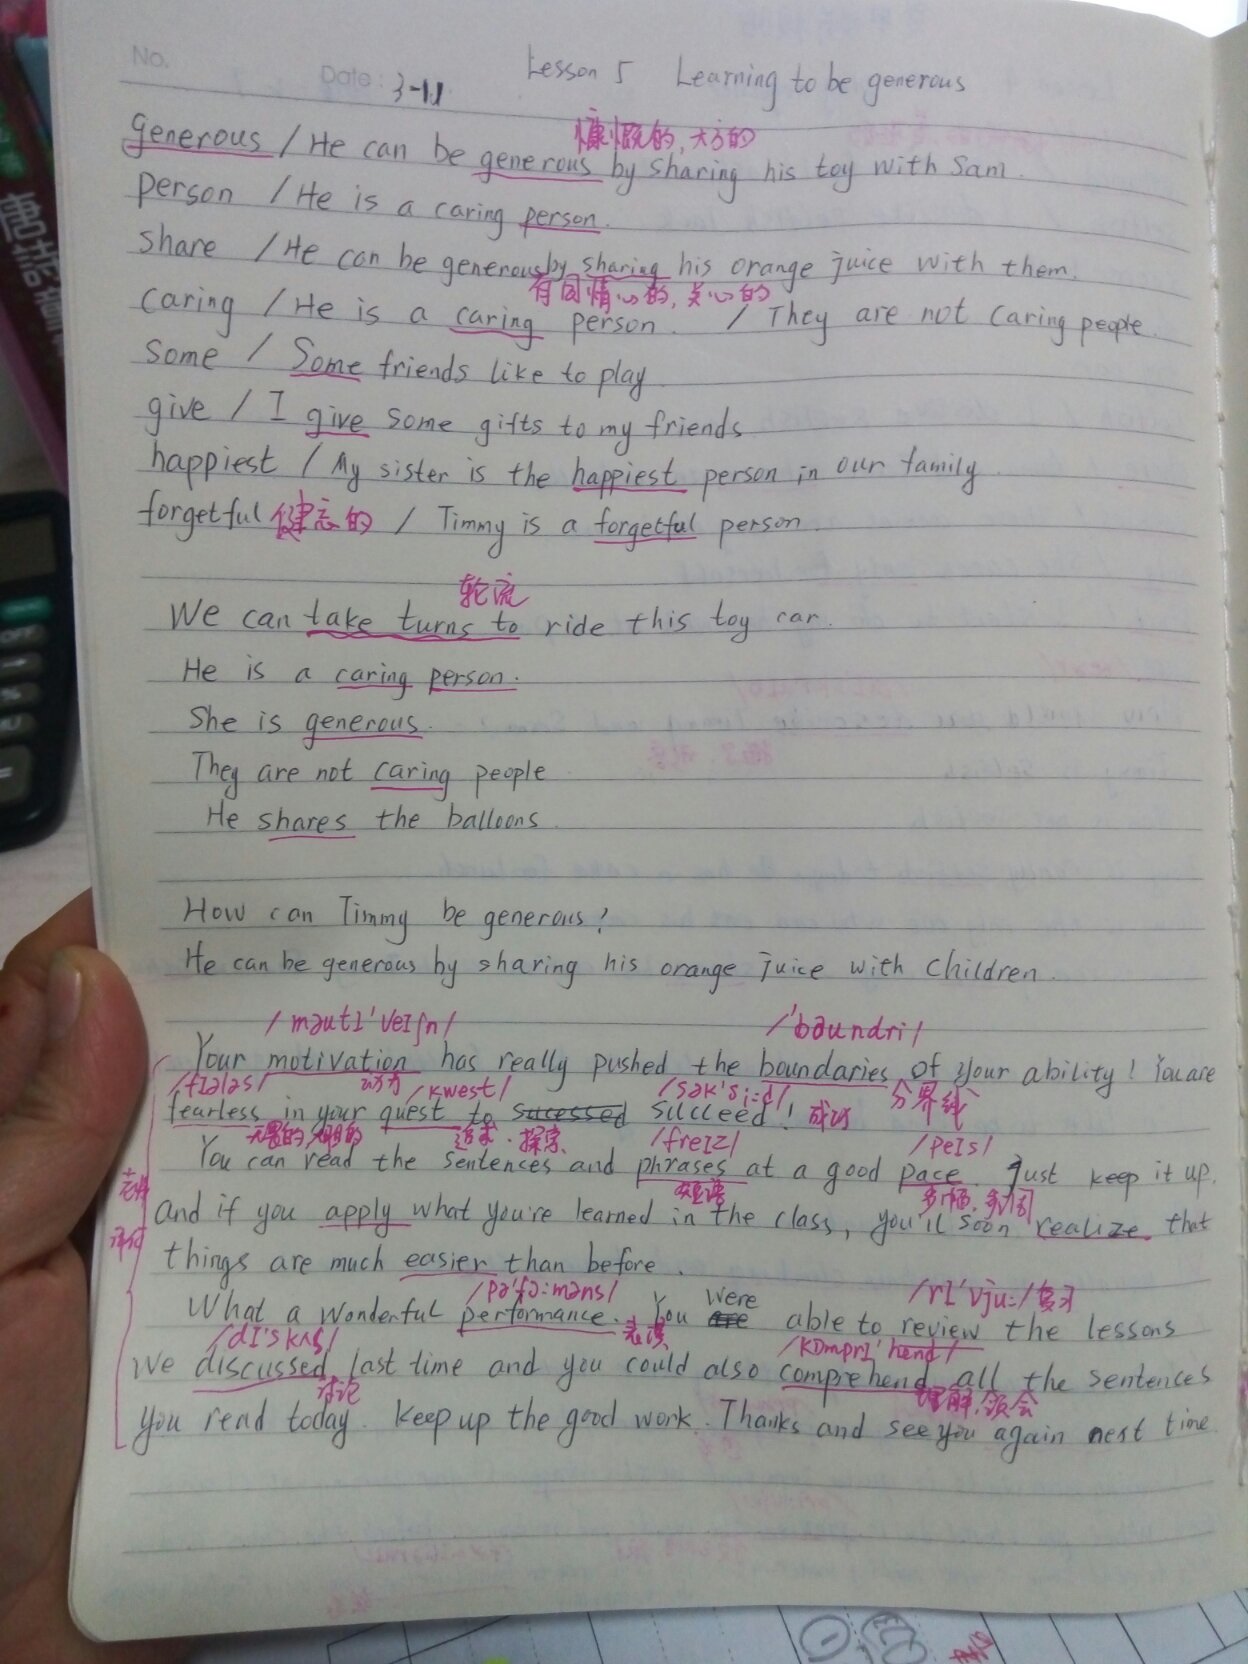 No.
Date: 3-11
Lesson 5 Learning to be generous
慷慨的,大方的
generous / He can be generous by sharing his toy with Sam.
person / He is a caring person.
share / He can be generous by sharing his orange juice with them.
有同情心的,关心的
caring / He is a caring person. / They are not caring people.
some / Some friends like to play
give / I give some gifts to my friends
happiest / My sister is the happiest person in our family.
forgetful 健忘的 / Timmy is a forgetful person.
轮流
We can take turns to ride this toy car.
He is a caring person.
She is generous.
They are not caring people
He shares the balloons.
How can Timmy be generous?
He can be generous by sharing his orange juice with children.
/məutɪ'veɪʃn/ /'baundri/
Your motivation has really pushed the boundaries of your ability! You are
/fɪələs/ 动力 /kwest/ /sək'si:d/ 分界线
fearless in your quest to sucessed succeed! 成功
追求.探索 /freɪz/ /peɪs/
You can read the sentences and phrases at a good pace. Just keep it up.
老师 短语
and if you apply what you're learned in the class, you'll soon realize that
评价
things are much easier than before.
/pə'fɔ:məns/ were /rɪ'vju:/ 复习
What a wonderful performance. You are able to review the lessons
/dɪ'skʌs/ 表演 /kɒmprɪ'hend/
We discussed last time and you could also comprehend all the sentences
讨论 理解,领会
you rend today. Keep up the good work. Thanks and see you again next time.